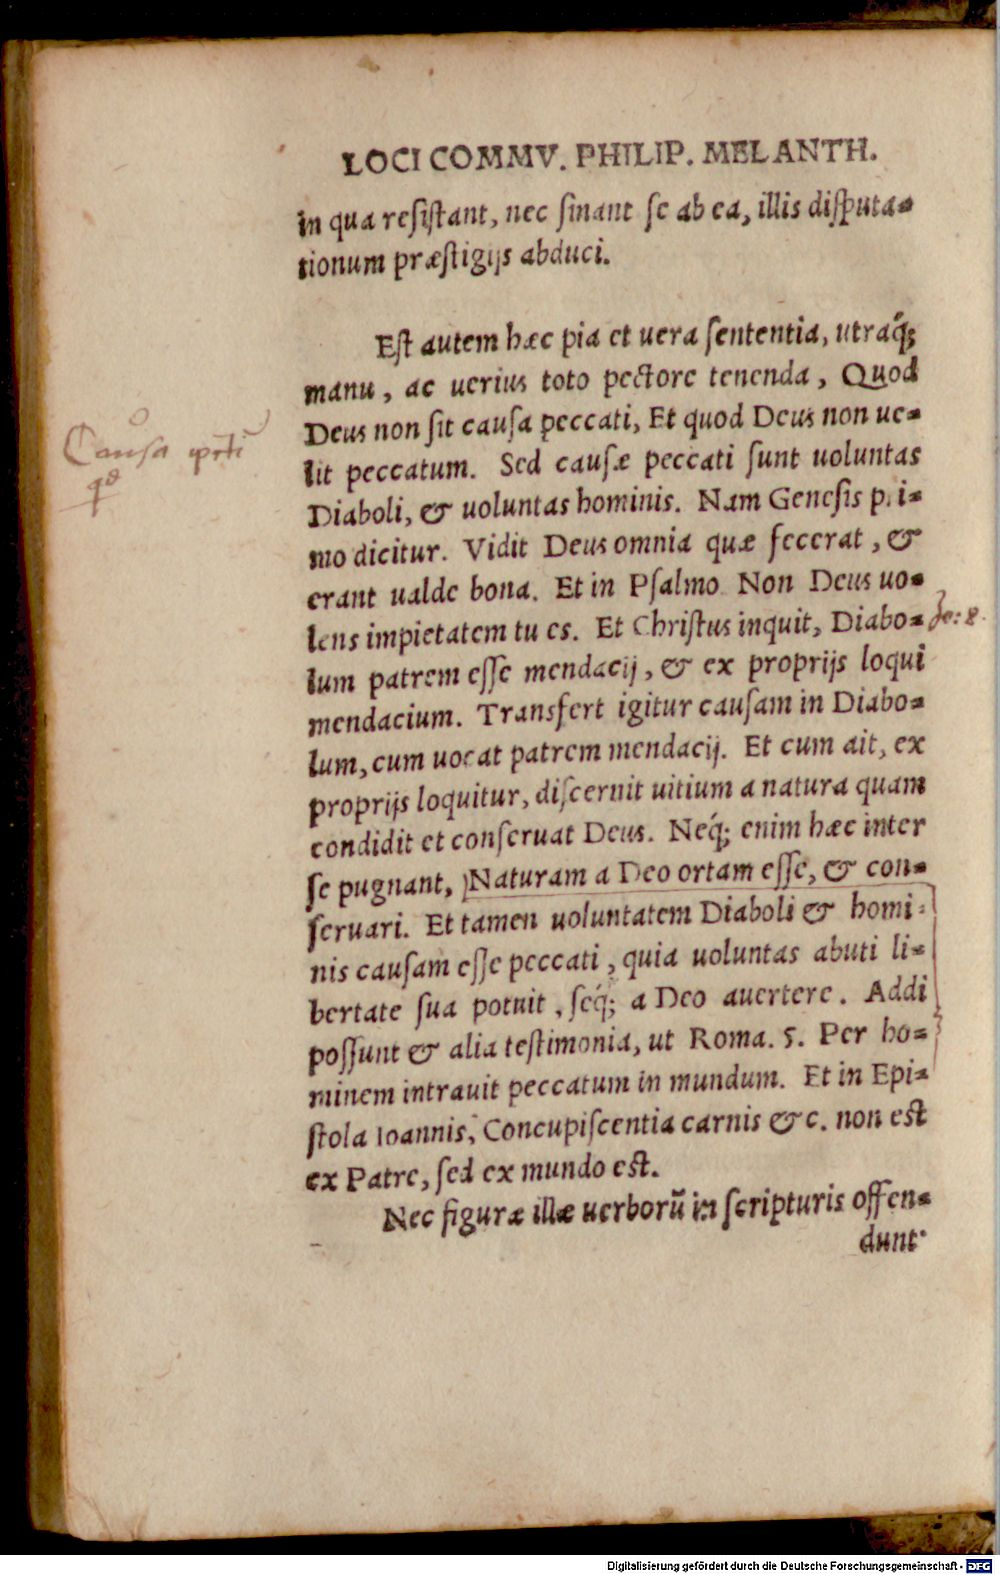 LOCI COMMV. PHILIP. MELANTH.
in qua resistant, nec sinant se ab ea, illis disputa=
tionum præstigijs abduci.
Est autem hæc pia et uera sententia, utraq́;
manu, ac uerius toto pectore tenenda, Quod
Deus non sit causa peccati, Et quod Deus non ue=
lit peccatum. Sed causæ peccati sunt uoluntas
Causa
Diaboli, & uoluntas hominis. Nam Genesis pri=
mo dicitur. Vidit Deus omnia quæ fecerat, &
erant ualde bona. Et in Psalmo Non Deus uo=
lens impietatem tu es. Et Christus inquit, Diabo=
Jo: 8.
lum patrem esse mendacij, & ex proprijs loqui
mendacium. Transfert igitur causam in Diabo=
lum, cum uocat patrem mendacij. Et cum ait, ex
proprijs loquitur, discernit uitium a natura quam
condidit et conseruat Deus. Neq́; enim hæc inter
se pugnant, Naturam a Deo ortam esse, & con=
seruari. Et tamen uoluntatem Diaboli & homi=
nis causam esse peccati, quia uoluntas abuti li=
bertate sua potuit, seq́; a Deo auertere. Addi
possunt & alia testimonia, ut Roma. 5. Per ho=
minem intrauit peccatum in mundum. Et in Epi=
stola Ioannis, Concupiscentia carnis &c. non est
ex Patre, sed ex mundo est.
Nec figuræ illæ uerborū in scripturis offen=
dunt
Digitalisierung gefördert durch die Deutsche Forschungsgemeinschaft - DFG